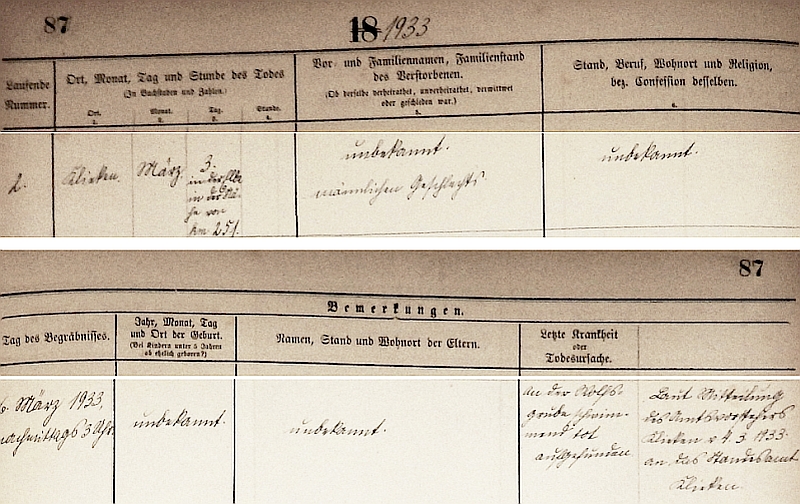 87
18 1933
Laufende
Nummer.
Ort, Monat, Tag und Stunde des Todes
(In Buchstaben und Zahlen.)
Ort.
1.
Monat.
2.
Tag.
3.
Stunde.
4.
Vor- und Familiennamen, Familienstand
des Verstorbenen.
(Ob derselbe verheirathet, unverheirathet, verwittwet
oder geschieden war.)
5.
Stand, Beruf, Wohnort und Religion,
bez. Confession desselben.
6.
2.
Klieken.
März
3.
in der Elbe
in der Nä-
he von
km 251.
unbekannt.
männlichen Geschlechts
unbekannt.
87
Bemerkungen.
Tag des Begräbnisses.
Jahr, Monat, Tag
und Ort der Geburt.
(Bei Kindern unter 5 Jahren
ob ehelich geboren?)
Namen, Stand und Wohnort der Eltern.
Letzte Krankheit
oder
Todesursache.
6. März 1933,
nachmittags 3 Uhr.
unbekannt.
unbekannt.
an der Wolfs-
grube schwim-
mend tot
aufgefunden
Laut Mitteilung
des Amtsvorstehers
Klieken v 4. 3. 1933.
an das Standesamt
Klieken.